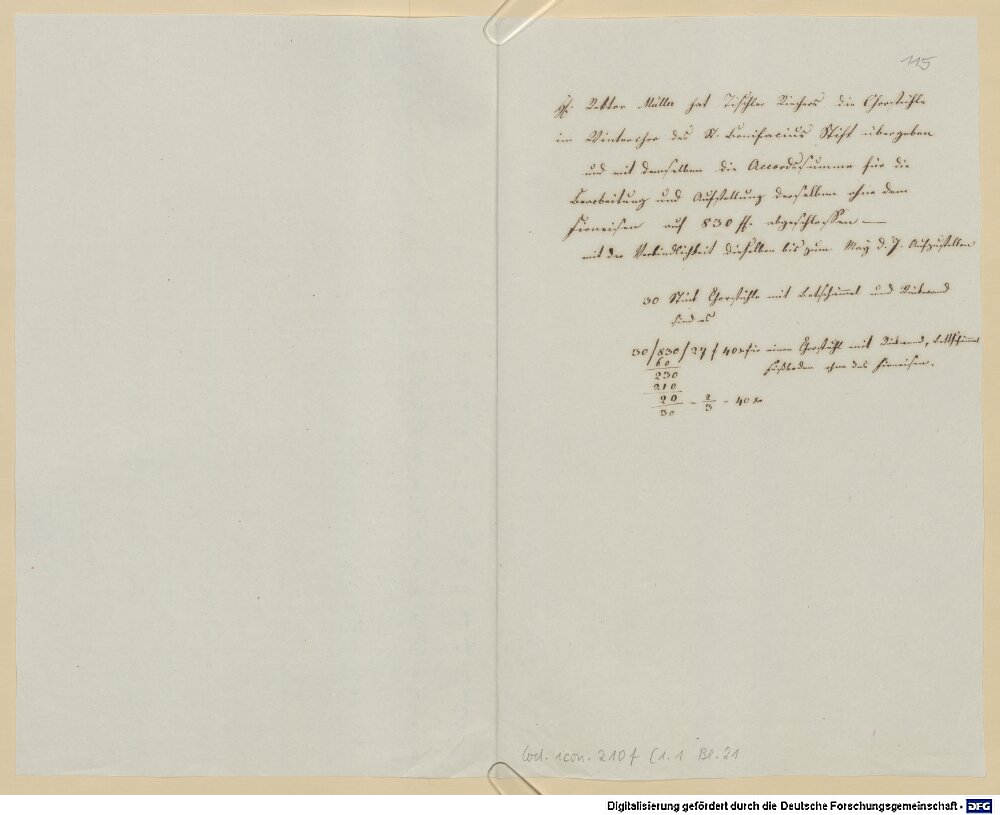 115
H. Rektor Müller hat Tischler die Chorstühle
im Winterchor des St. Bonifacius Stift übergeben
und mit demselben die Accordssumme für die
Bearbeitung und Aufstellung derselben ohne dem
Firneisen auf 830 fl. abgeschlossen —
mit der Verbindlichkeit dieselben bis zum May d. J. Aufzustellen
30 Stück Chorstühle mit Betschämmel und Rükwand
sind es
30/830/27 f 40 x für einen Chorstuhl mit Rükwand, Bettschämmel
60 Fußboden ohne das Firneisen.
230
210
20/30 = 2/3 = 40 x
Cod. icon. 210 f (1. 1 Bl. 21
Digitalisierung gefördert durch die Deutsche Forschungsgemeinschaft - DFG